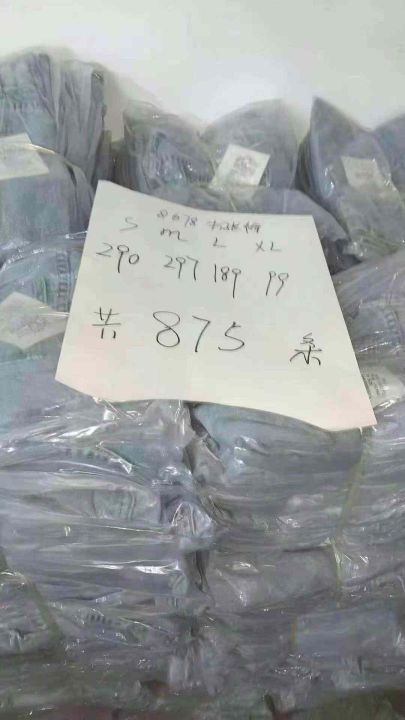 8678
S M L XL
290 297 189 99
共 875 条